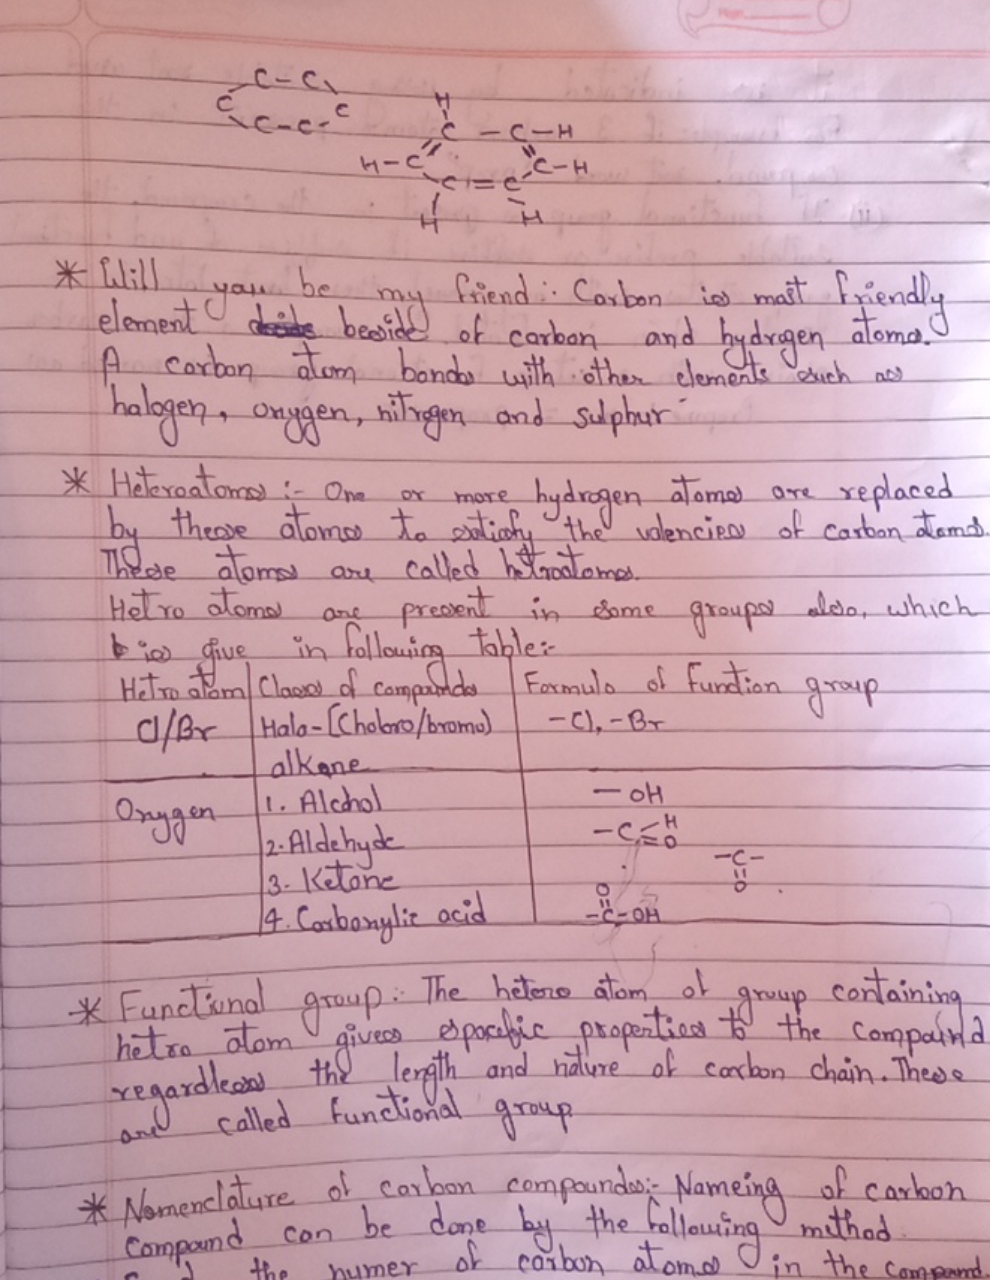 C-C
C C
C-C-C
H
C-C-H
H-C C-H
C=C
H H
* Will you be my friend : Carbon is most friendly
element beside of carbon and hydrogen atoms.
A carbon atom bonds with other elements such as
halogen, oxygen, nitrogen and sulphur
* Heteroatoms :- One or more hydrogen atoms are replaced
by these atoms to satisfy the valencies of carbon atoms.
These atoms are called hetroatoms.
Hetro atoms are present in some groups also, which
is give in following table:-
Hetro atom Class of compounds Formula of Function group
Cl/Br Halo-[Choloro/bromo) -Cl, -Br
alkane
Oxygen 1. Alcohol - OH
2. Aldehyde -C H
O
3. Ketone -C-
O
O
4. Carboxylic acid -C-OH
* Functional group :- The hetero atom of group containing
hetro atom gives specific properties to the compound
regardless the length and nature of carbon chain. These
are called functional group
* Nomenclature of carbon compounds:- Nameing of carbon
compound can be done by the following method
the numer of carbon atoms in the compound